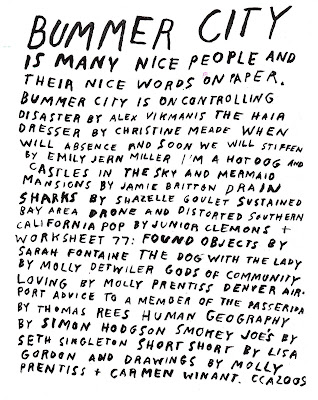 BUMMER CITY
IS MANY NICE PEOPLE AND
THEIR NICE WORDS ON PAPER.
BUMMER CITY IS ON CONTROLLING
DISASTER BY ALEX VIKMANIS THE HAIR
DRESSER BY CHRISTINE MEADE WHEN
WILL ABSENCE AND SOON WE WILL STIFFEN
BY EMILY JERN MILLER I'M A HOT DOG AND
CASTLES IN THE SKY AND MERMAID
MANSIONS BY JAMIE BRITTON DRAIN
SHARKS BY SHAZELLE GOULET SUSTAINED
BAY AREA DRONE AND DISTORTED SOUTHERN
CALIFORNIA POP BY JUNIOR CLEMONS +
WORKSHEET 77: FOUND OBJECTS BY
SARAH FONTAINE THE DOG WITH THE LADY
BY MOLLY DETWILER GODS OF COMMUNITY
LOVING BY MOLLY PRENTISS DENVER AIR-
PORT ADVICE TO A MEMBER OF THE PASSERIDA
BY THOMAS REES HUMAN GEOGRAPHY
BY SIMON HODGSON SMOKEY JOE'S BY
SETH SINGLETON SHORT SHORT BY LISA
GORDON AND DRAWINGS BY MOLLY
PRENTISS + CARMEN WINANT. CCA2008